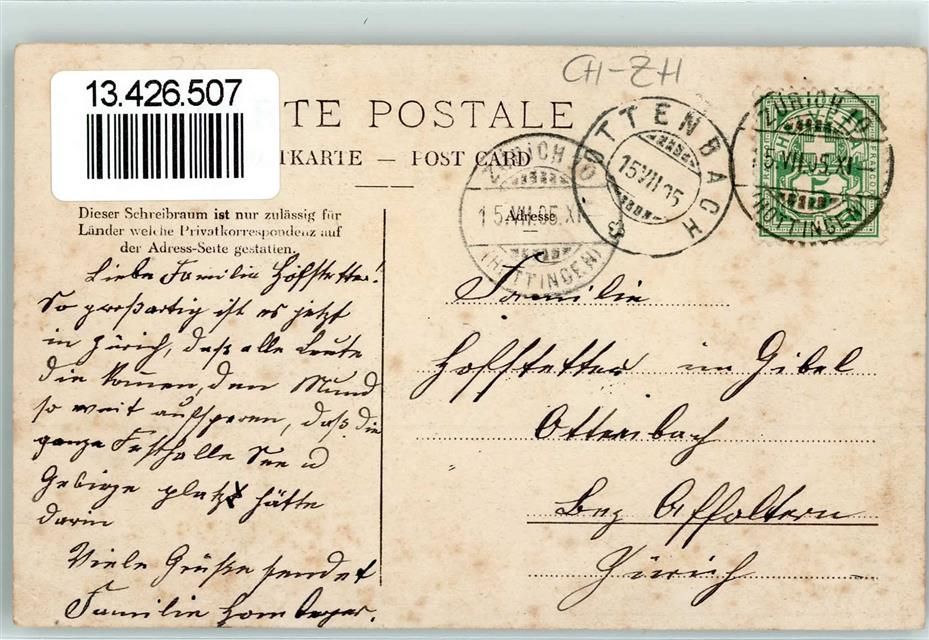 13.426.507
CH-ZH
TE POSTALE
TKARTE — POST CARD
Dieser Schreibraum ist nur zulässig für
Länder welche Privatkorrespondenz auf
der Adress-Seite gestatten.
Adresse
OTTENBACH
15 VII 05
ZÜRICH
15.VII.05.XI
(HOTTINGEN)
ZÜRICH
15.VII.05.XI
(HOTTINGEN)
Liebe Familie Hofstetter!
So großartig ist es jetzt
in Zürich, daß alle Leute
die kommen, den Mund
so weit aufsperren, daß die
ganze Festhalle See u
Gebirge platz hätte
darin
Viele Grüße sendet
Familie Homberger.
Familie
Hofstetter im Gibel
Ottenbach
Bez Affoltern
Zürich